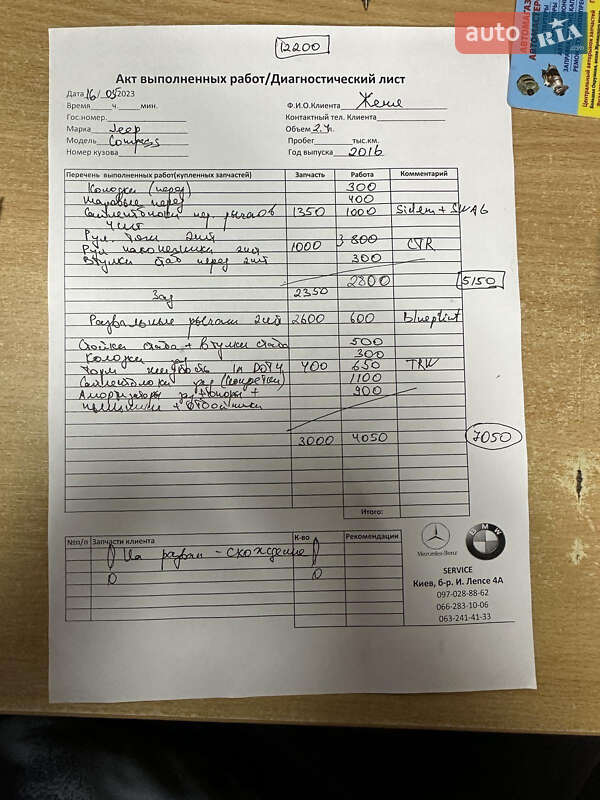 12200
auto RIA
Акт выполненных работ/Диагностический лист
Дата 16/ 09/2023
Время ч. мин.
Ф.И.О.Клиента Женя
Гос.номер.
Контактный тел. Клиента
Марка Jeep
Объем 2.4л.
Модель Compass
Пробег тыс.км.
Номер кузова
Год выпуска 2016
Перечень выполненных работ(купленных запчастей) Запчасть Работа Комментарий
Колодки (перед) 300
Шаровые перед 400
Сайлентблоки пер. рычагов 1350 1000 Sidem + SWAG
4шт
Рул. тяги 2шт 800
Рул наконечники 2шт 1000 CTR
Втулки стаб перед 2шт 300
2800 5150
Зад 2350
Развальные рычаги 2шт 2600 600 blueprint
Стойки стаба + втулки стаба 500
Колодки 300
Торм жидкость 1л DOT4 400 650 TRW
Сайлентблоки 1100
Амортизаторы + опоры + 900
+ отбойники
3000 4050 7050
Итого:
№п/п Запчасти клиента К-во Рекомендации
На развал - схождение
Mercedes-Benz
BMW
SERVICE
Киев, б-р. И. Лепсе 4А
097-028-88-62
066-283-10-06
063-241-41-33